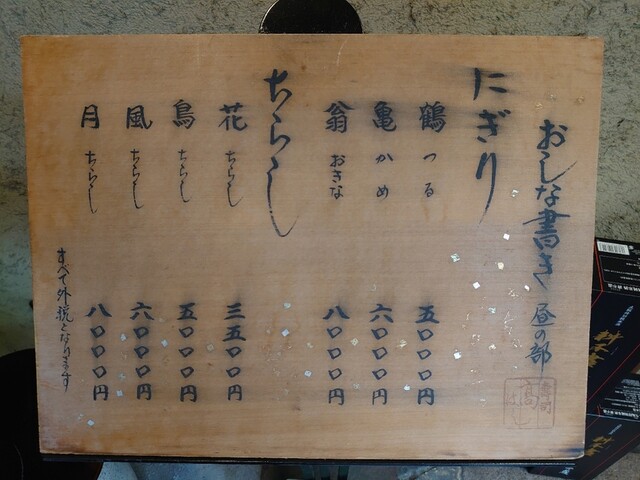 おしな書き 昼の部
にぎり
鶴 つる 五〇〇〇円
亀 かめ 六〇〇〇円
翁 おきな 八〇〇〇円
ちらし
花 ちらし 三五〇〇円
鳥 ちらし 五〇〇〇円
風 ちらし 六〇〇〇円
月 ちらし 八〇〇〇円
すべて外税となります